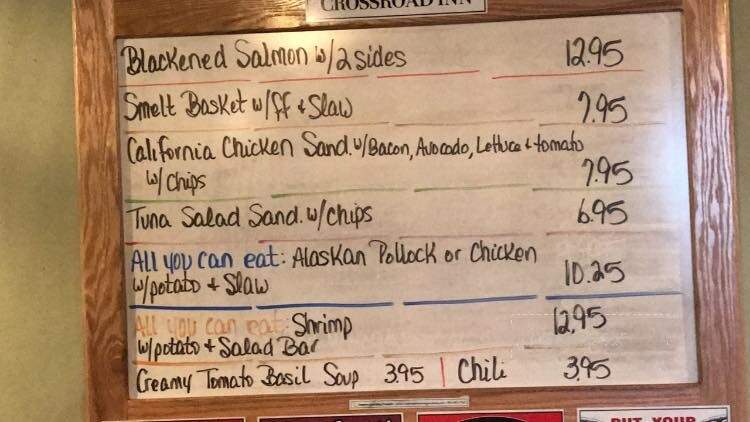 CROSSROAD INN
Blackened Salmon w/2 sides 12.95
Smelt Basket w/ff & Slaw 7.95
California Chicken Sand. w/Bacon, Avocado, Lettuce & tomato
w/chips 7.95
Tuna Salad Sand. w/chips 6.95
All you can eat: Alaskan Pollock or Chicken
w/potato & Slaw 10.25
All you can eat: Shrimp 12.95
w/potato & Salad Bar
Creamy Tomato Basil Soup 3.95 | Chili 3.95
PUT YOUR